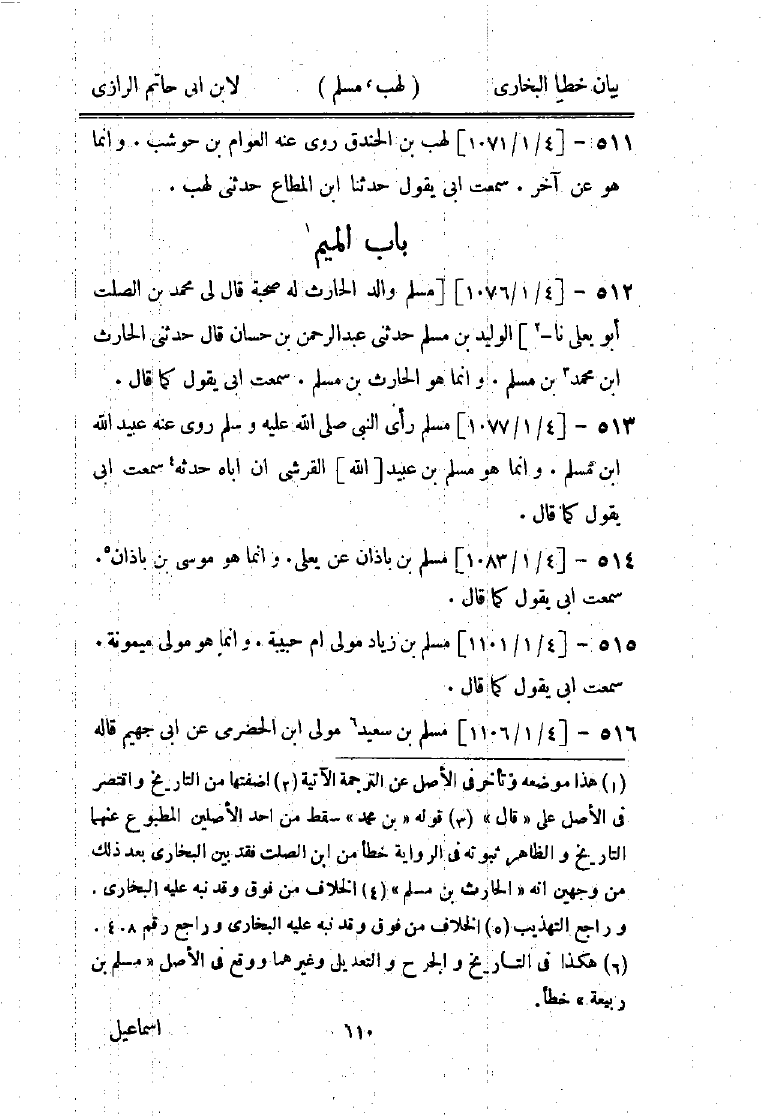 بيان خطأ البخارى ( لهب ، مسلم ) لابن ابى حاتم الرازى
٥١١ - [١٠٧١/١/٤] لهب بن الخندق روى عنه العوام بن حوشب . و انما
هو عن آخر . سمعت ابى يقول حدثنا ابن المطاع حدثنى لهب .
باب الميم ١
٥١٢ - [١٠٧٦/١/٤] [مسلم والد الحارث له صحبة قال لى محمد بن الصلت
أبو يعلى نا-٢] الوليد بن مسلم حدثنى عبدالرحمن بن حسان قال حدثنى الحارث
ابن محمد٣ بن مسلم . و انما هو الحارث بن مسلم . سمعت ابى يقول كما قال .
٥١٣ - [١٠٧٧/١/٤] مسلم رأى النبى صلى الله عليه و سلم روى عنه عبيد الله
ابن مسلم . و انما هو مسلم بن عبيد [الله] القرشى ان اباه حدثه٤ سمعت ابى
يقول كما قال .
٥١٤ - [١٠٨٣/١/٤] مسلم بن باذان عن يعلى . و انما هو موسى بن باذان٥.
سمعت ابى يقول كما قال .
٥١٥ - [١١٠١/١/٤] مسلم بن زياد مولى ام حبيبة . و انما هو مولى ميمونة .
سمعت ابى يقول كما قال .
٥١٦ - [١١٠٦/١/٤] مسلم بن سعيد٦ مولى ابن الحضرمى عن ابى جهيم قاله
(١) هذا موضعه وتأخر فى الأصل عن الترجمة الآتية (٢) اضفتها من التاريخ و اقتصر
فى الأصل على « قال » (٣) قوله « بن محمد » سقط من احد الأصلين المطبوع عنهما
التاريخ و الظاهر ثبوته فى الرواية خطأ من ابن الصلت فقد بين البخارى بعد ذلك
من وجهين انه « الحارث بن مسلم » (٤) الخلاف من فوق وقد نبه عليه البخارى .
و راجع التهذيب (٥) الخلاف من فوق وقد نبه عليه البخارى و راجع رقم ٤٠٨ .
(٦) هكذا فى التاريخ و الجرح و التعديل وغيرهما ووقع فى الأصل « مسلم بن
ربيعة » خطأ.
٦١٠ اسماعيل